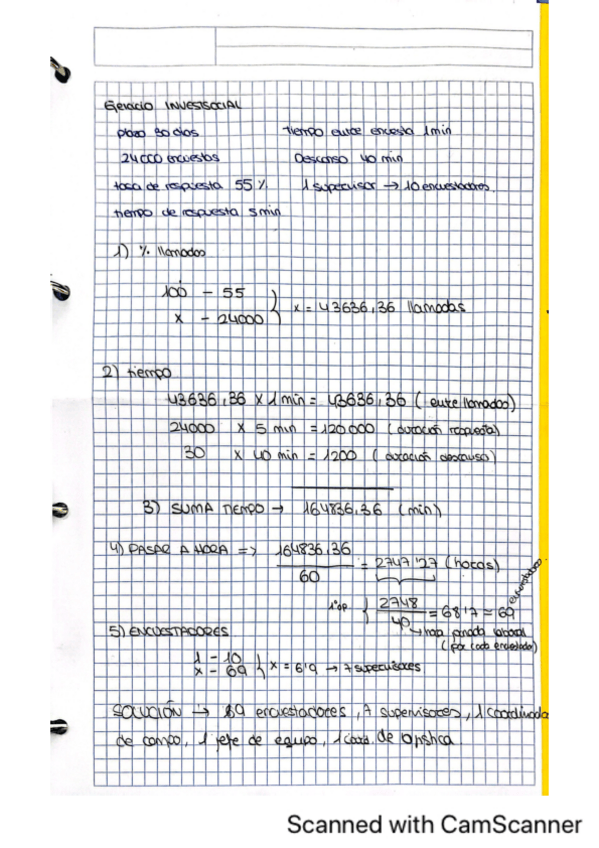 Ejercicio INVESTSOCIAL
plazo 30 días tiempo entre encuesta 1min
24000 encuestas Descanso 40 min
tasa de respuesta 55% 1 supervisor → 10 encuestadores.
tiempo de respuesta 5min
1) % llamadas
100 - 55
x - 24000 } x = 43636,36 llamadas
2) tiempo
43636,36 x 1 min = 43636,36 ( entre llamadas)
24000 x 5 min = 120000 ( duración respuesta)
30 x 40 min = 1200 ( duración descanso)
3) SUMA TIEMPO → 164836,36 (min)
4) PASAR A HORA => 164836,36 / 60 = 2747'27 (horas)
1ª op. { 2748 / 40 = 68'7 = 69 encuestadores
→ jornada laboral
( por cada encuestador)
5) ENCUESTADORES
1 - 10
x - 69 } x = 6'9 → 7 supervisores
SOLUCIÓN → 69 encuestadores, 7 supervisores, 1 coordinada
de campo, 1 jefe de equipo, 1 coord. de
Scanned with CamScanner